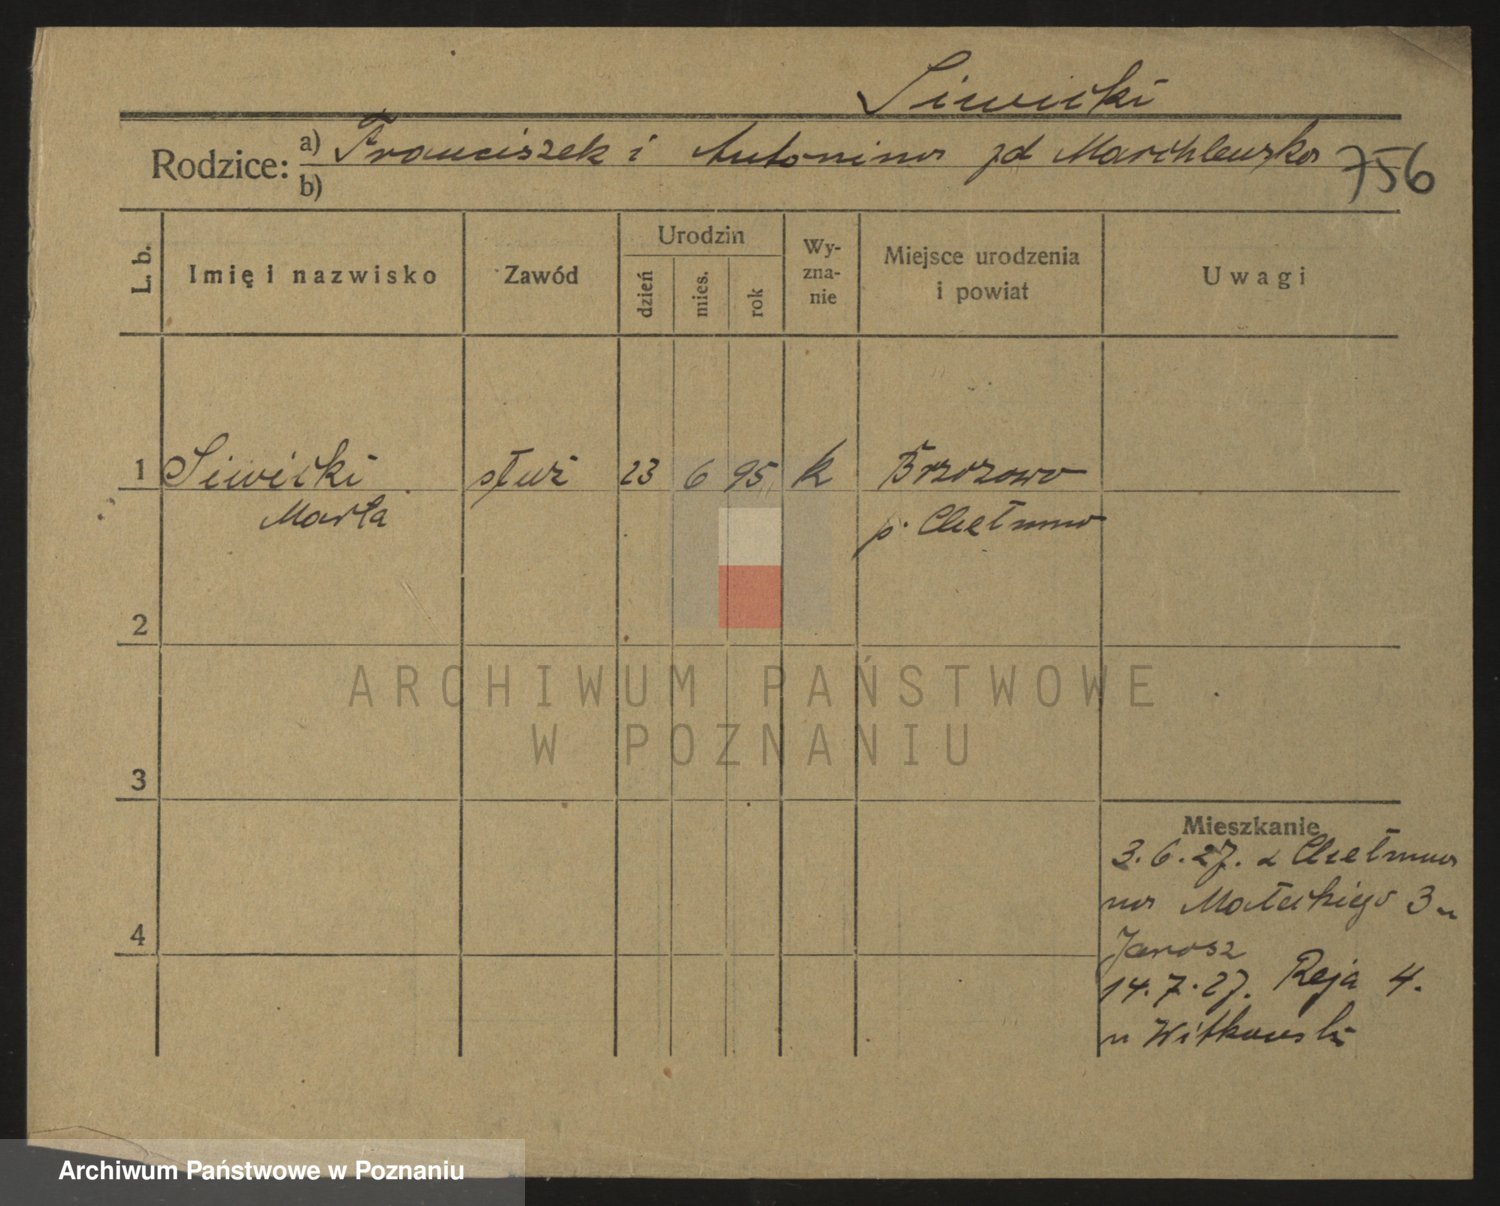 Siwicki
Rodzice: a) Franciszek i Antonina zd Marchlewska
b)
756
L. b.
Imię i nazwisko
Zawód
Urodzin
dzień
mies.
rok
Wy-
zna-
nie
Miejsce urodzenia
i powiat
Uwagi
1 Siwicki służ 23 6 95 k Brzozowo
Marta p. Chełmno
2
3
4
Mieszkanie
3.6.27. z Chełmna
na Małeckiego 3 u
Jarosz
14.7.27. Reja 4.
u Witkowski
ARCHIWUM PAŃSTWOWE
W POZNANIU
Archiwum Państwowe w Poznaniu